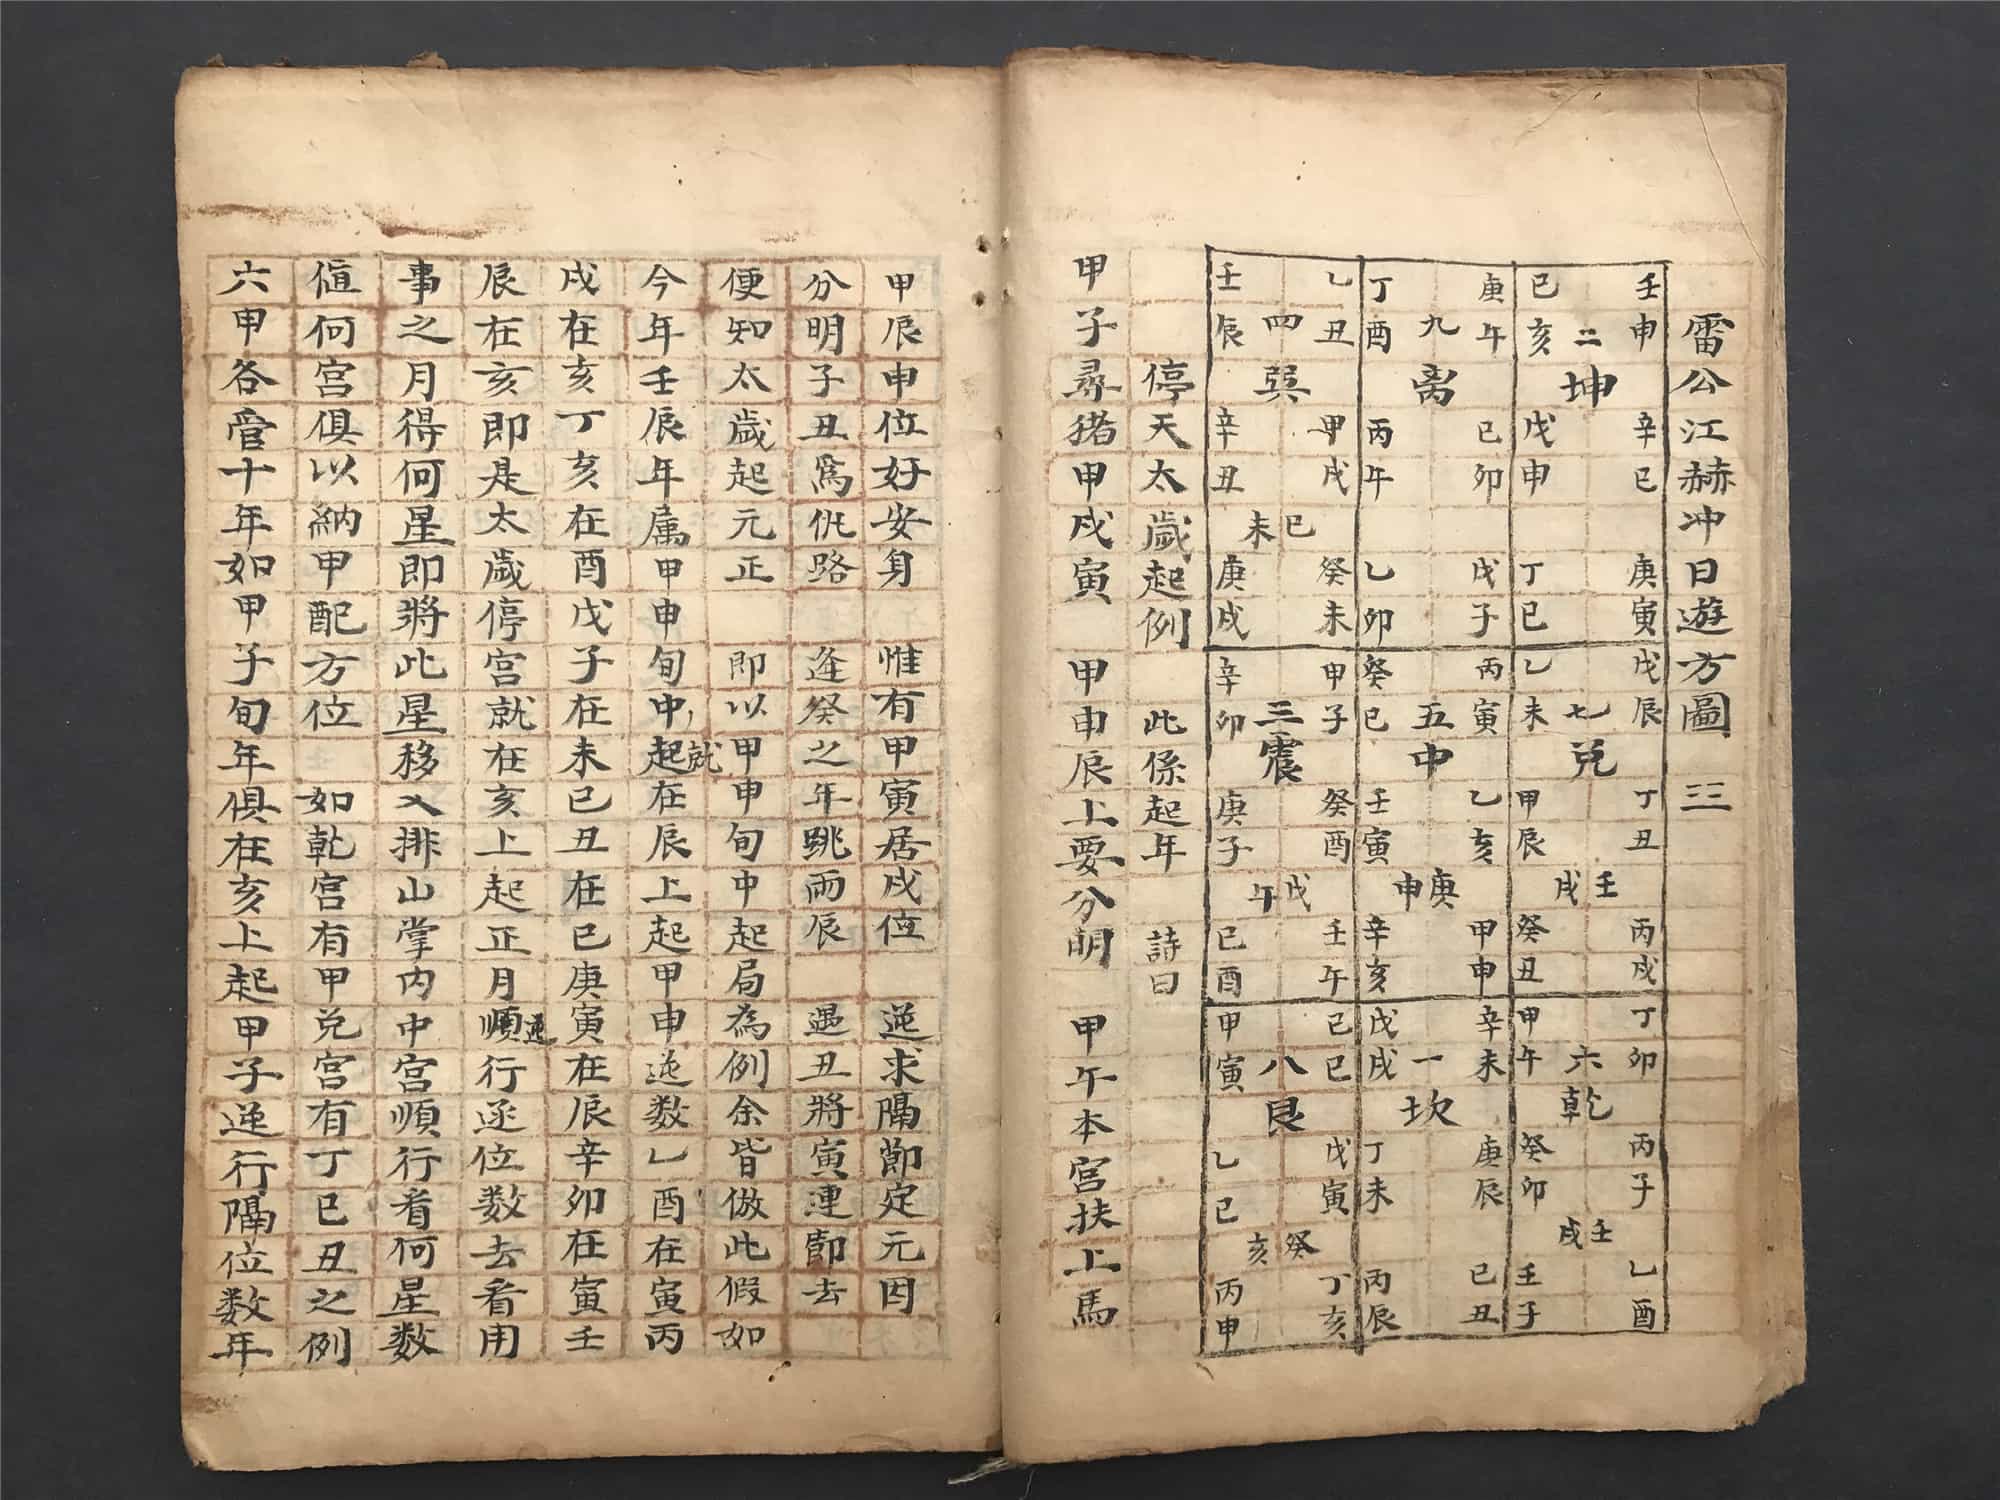 雷公江赫冲日遊方圖 三
壬申 二坤 己亥
辛巳 戊申
庚寅 丁巳
庚午 九离 丁酉
己卯 丙午
戊子 乙卯
乙丑 四巽 壬辰
甲戌 辛丑
己未
癸未 庚戌
戊辰 七兑 乙未
丁丑 甲辰
壬戌
丙戌 癸丑
丙寅 五中 癸巳
乙亥 壬寅
庚申
甲申 辛亥
甲子 三震 辛卯
癸酉 庚子
戊午
壬午 己酉
丁卯 六乾 甲午
丙子 癸卯
壬戌
乙酉 壬子
辛未 一坎 戊戌
庚辰 丁未
己丑 丙辰
己巳 八艮 甲寅
戊寅 乙巳
癸亥
丁亥 丙申
停天太歲起例 此係起年 詩曰
甲子尋猪甲戌寅 甲申辰上要分明 甲午本宮扶上馬
甲辰申位好安身 惟有甲寅居戌位 逆求隔節定元因
分明子丑為仇路 逢癸之年跳两辰 遇丑將寅連節去
便知太歲起元正 即以甲申旬中起局為例余皆倣此假如
今年壬辰年属甲申旬中就起在辰上起甲申逆数乙酉在寅丙
戌在亥丁亥在酉戊子在未己丑在巳庚寅在辰辛卯在寅壬
辰在亥即是太歲停宮就在亥上起正月順逆行逐位数去看用
事之月得何星即將此星移入排山掌内中宮順行看何星数
値何宮俱以納甲配方位 如乾宮有甲兑宮有丁巳丑之例
六甲各管十年如甲子旬年俱在亥上起甲子逆行隔位数年